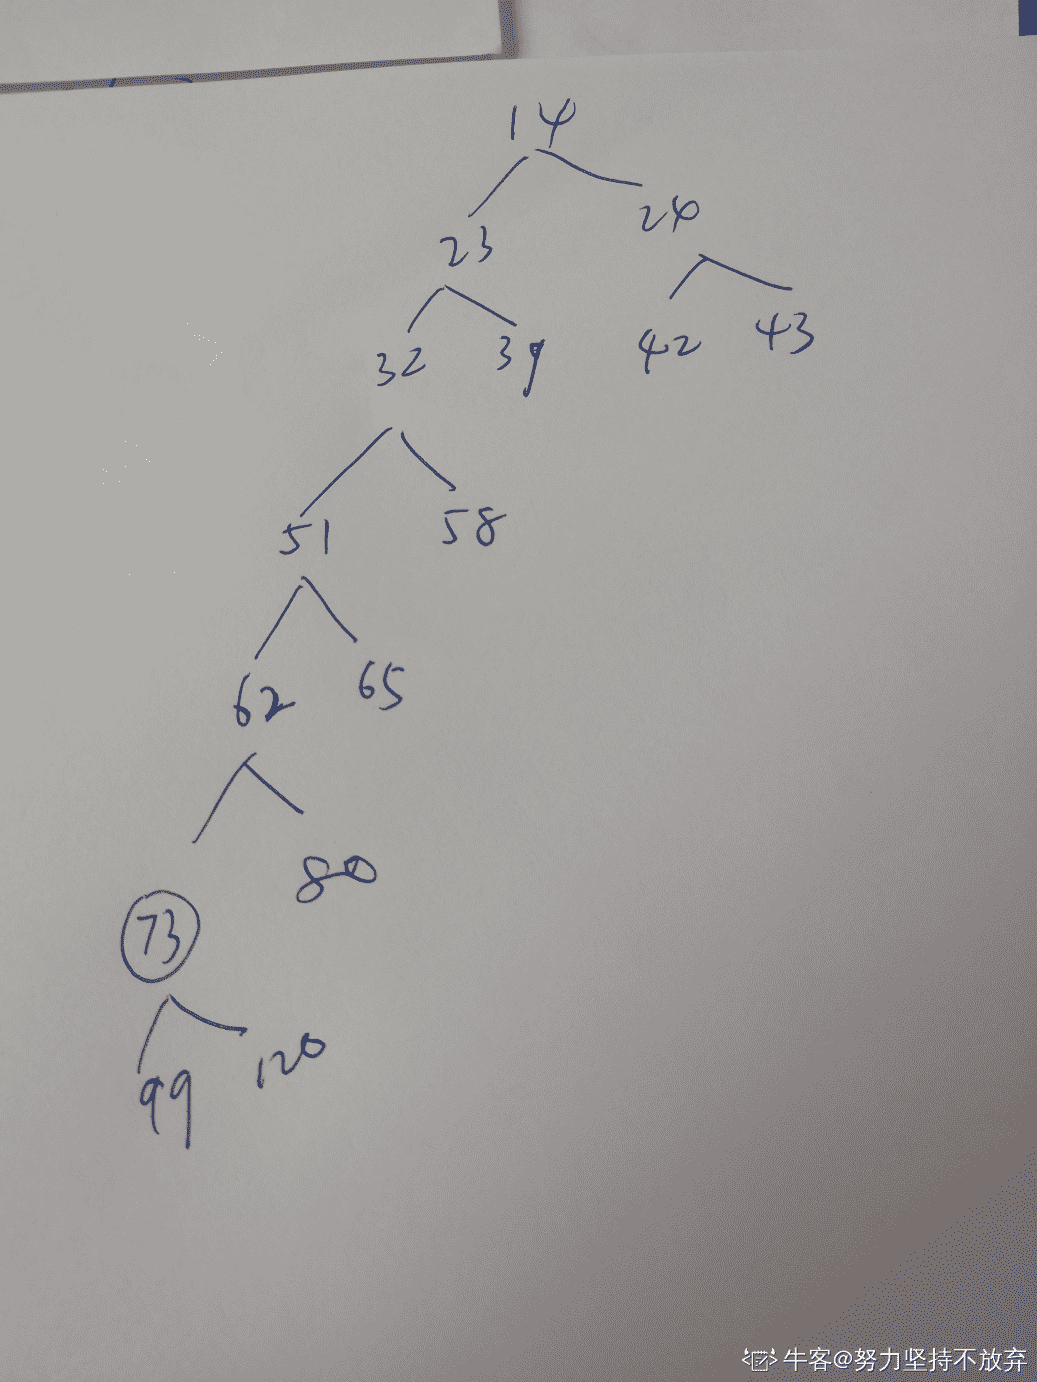 14
23 24
32 39 42 43
51 58
62 65
73 80
99 120
牛客@努力坚持不放弃